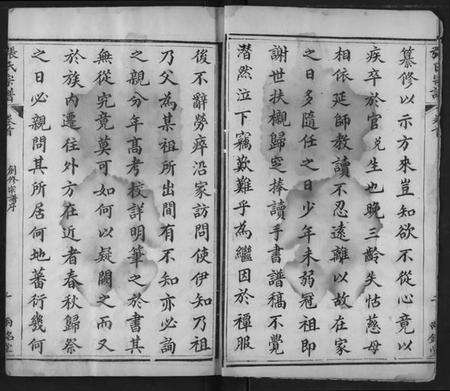 纂修以示方來豈知欲不從心竟以
疾卒於官兌生也晚三齡失怙慈母
相依延師教讀不忍遠離以故在家
之日多隨任之日少年未弱冠祖即
謝世扶櫬歸窆捧讀手書譜稿不覺
潸然泣下竊歎難乎為繼因於禫服
張氏宗譜
卷首
創修宗譜序
後不辭勞瘁沿家訪問使伊知乃祖
乃父為某祖所出間有不知亦必詢
之親分年高考校詳明筆之於書其
無從究竟莫可如何以疑闕之而又
於族內遷往外方在近者春秋歸祭
之日必親問其所居何地蕃衍幾何